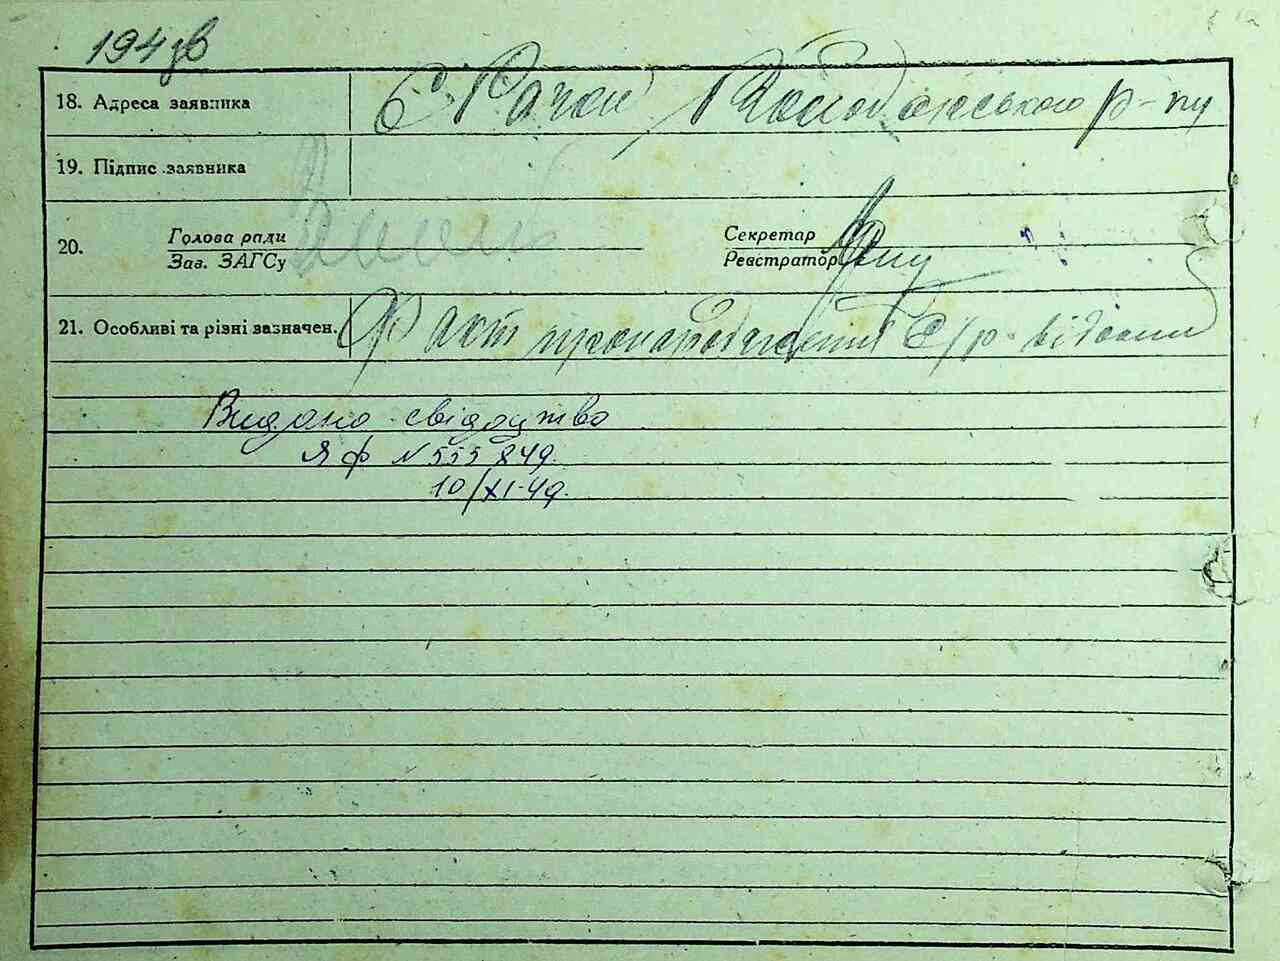 194зв
18. Адреса заявника С. Рогоп р-ну
19. Підпис заявника
20. Голова ради Секретар
Зав. ЗАГСу Реєстратор
21. Особливі та різні зазначен. Факт с/р відомий
Видано свідоцтво
ЯФ N 555849
10/XI-49.